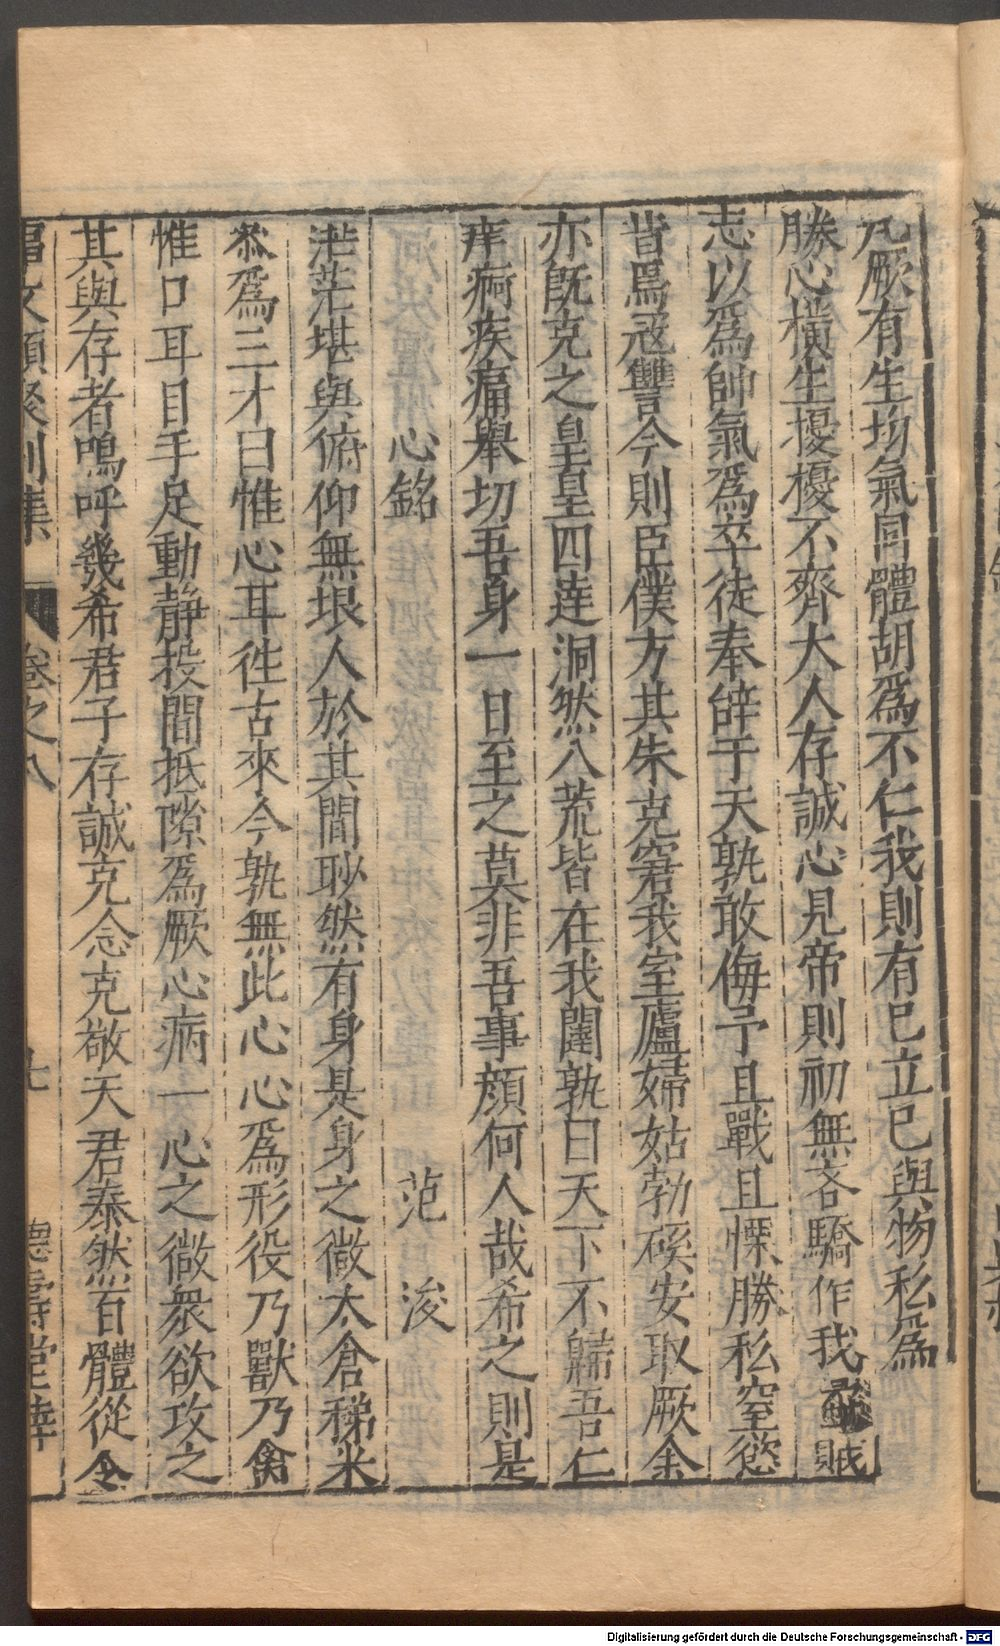 凡厥有生均氣同體胡爲不仁我則有已立已與物私爲
勝心橫生擾擾不齊大人存誠心見帝則初無吝驕作我蟊賊
志以爲帥氣爲卒徒奉辭于天孰敢侮予且戰且慄勝私窒慾
昔爲冦讐今則臣僕方其未克窘我室廬婦姑勃磎安取厥余
亦旣克之皇皇四達洞然八荒皆在我闥孰曰天下不歸吾仁
痒痾疾痛舉切吾身一日至之莫非吾事顔何人哉希之則是
心銘 范浚
茫茫堪輿俯仰無垠人於其間眇然有身是身之微太倉稊米
叅爲三才曰惟心耳徃古來今孰無此心心爲形役乃獸乃禽
惟口耳目手足動静投間抵隙爲厥心病一心之微衆欲攻之
其與存者嗚呼幾希君子存誠克念克敬天君泰然百體從令
事文類聚別集 卷之八 七 德壽堂梓
Digitalisierung gefördert durch die Deutsche Forschungsgemeinschaft - DFG